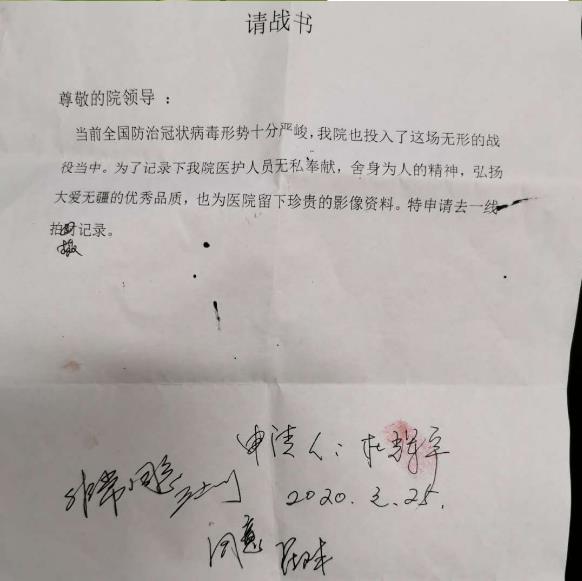 请战书
尊敬的院领导：
当前全国防治冠状病毒形势十分严峻，我院也投入了这场无形的战
役当中。为了记录下我院医护人员无私奉献，舍身为人的精神，弘扬
大爱无疆的优秀品质，也为医院留下珍贵的影像资料。特申请去一线
拍摄记录。
申请人：杜
非常同意
2020.2.25.
同意